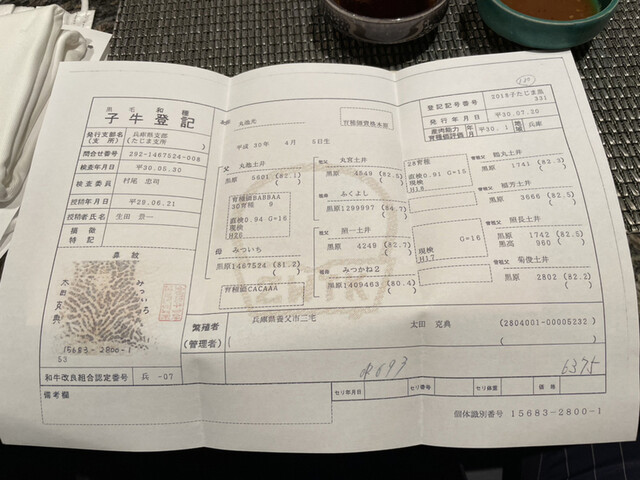 黒毛和種
子牛登記
発行支部名 兵庫県支部
(支所) (たじま支所)
問合せ番号 292-1467524-008
検査年月日 平30.05.30
検査委員 村尾 忠司
授精年月日 平29.06.21
授精者氏名 生田 豊一
特徴
特記
鼻紋
太田克典
みついろ
15683-2800-1
53
和牛改良組合認定番号 兵 -07
備考欄
名号 丸池光
育種価資格本部
登記記号番号 2018子たじま黒
331
発行年月日 平30.07.20
産肉能力 年月 平30.1 地域 兵庫
育種価評価月
平成 30年 4月 5日生
父 丸池土井
黒原 5601 (82.1)
( )
育種価BABBAA
30育種 9
直検0.94 G=16
現検
H26
祖父 丸宮土井
黒原 4549 (82.5)
( )
祖母 ふくよし
黒原1299997 (84.7)
( )
28育種
直検0.91 G=15
現検
H18
曽祖父 鶴丸土井
黒原 1741 (83.3)
( )
曽祖父 植芳土井
黒原 3666 (82.5)
( )
母 みついち
黒原1467524 (81.2)
( )
育種価CACAAA
祖父 照一土井
黒原 4249 (82.7)
( )
祖母 みつかね2
黒原1409463 (80.4)
( )
G=16
現検
H17
曽祖父 照長土井
黒原 1742 (82.5)
黒高 960 ( )
曽祖父 菊俊土井
黒原 2802 (82.2)
( )
繁殖者 兵庫県養父市三宅 太田 克典 (2804001-00005232 )
(管理者) ( )
6375
セリ年月日 セリ番号 セリ体重 価格
個体識別番号 15683-2800-1